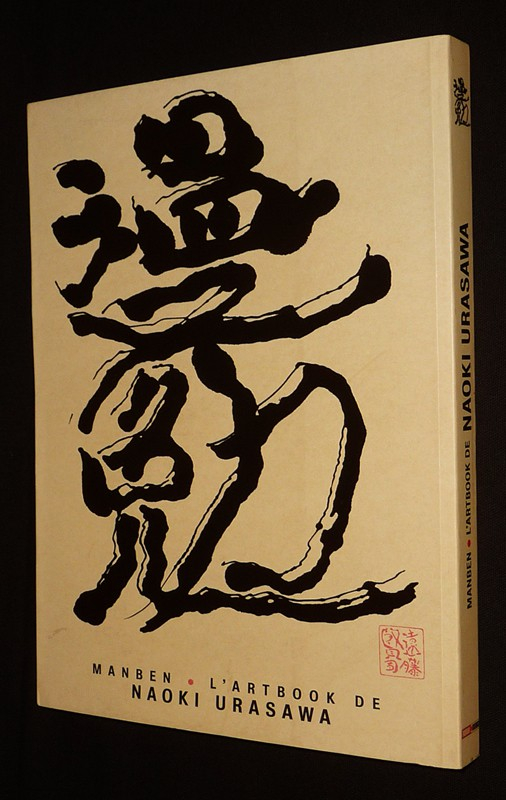 漫
勉
MANBEN • L'ARTBOOK DE
NAOKI URASAWA
MANBEN • L'ARTBOOK DE NAOKI URASAWA